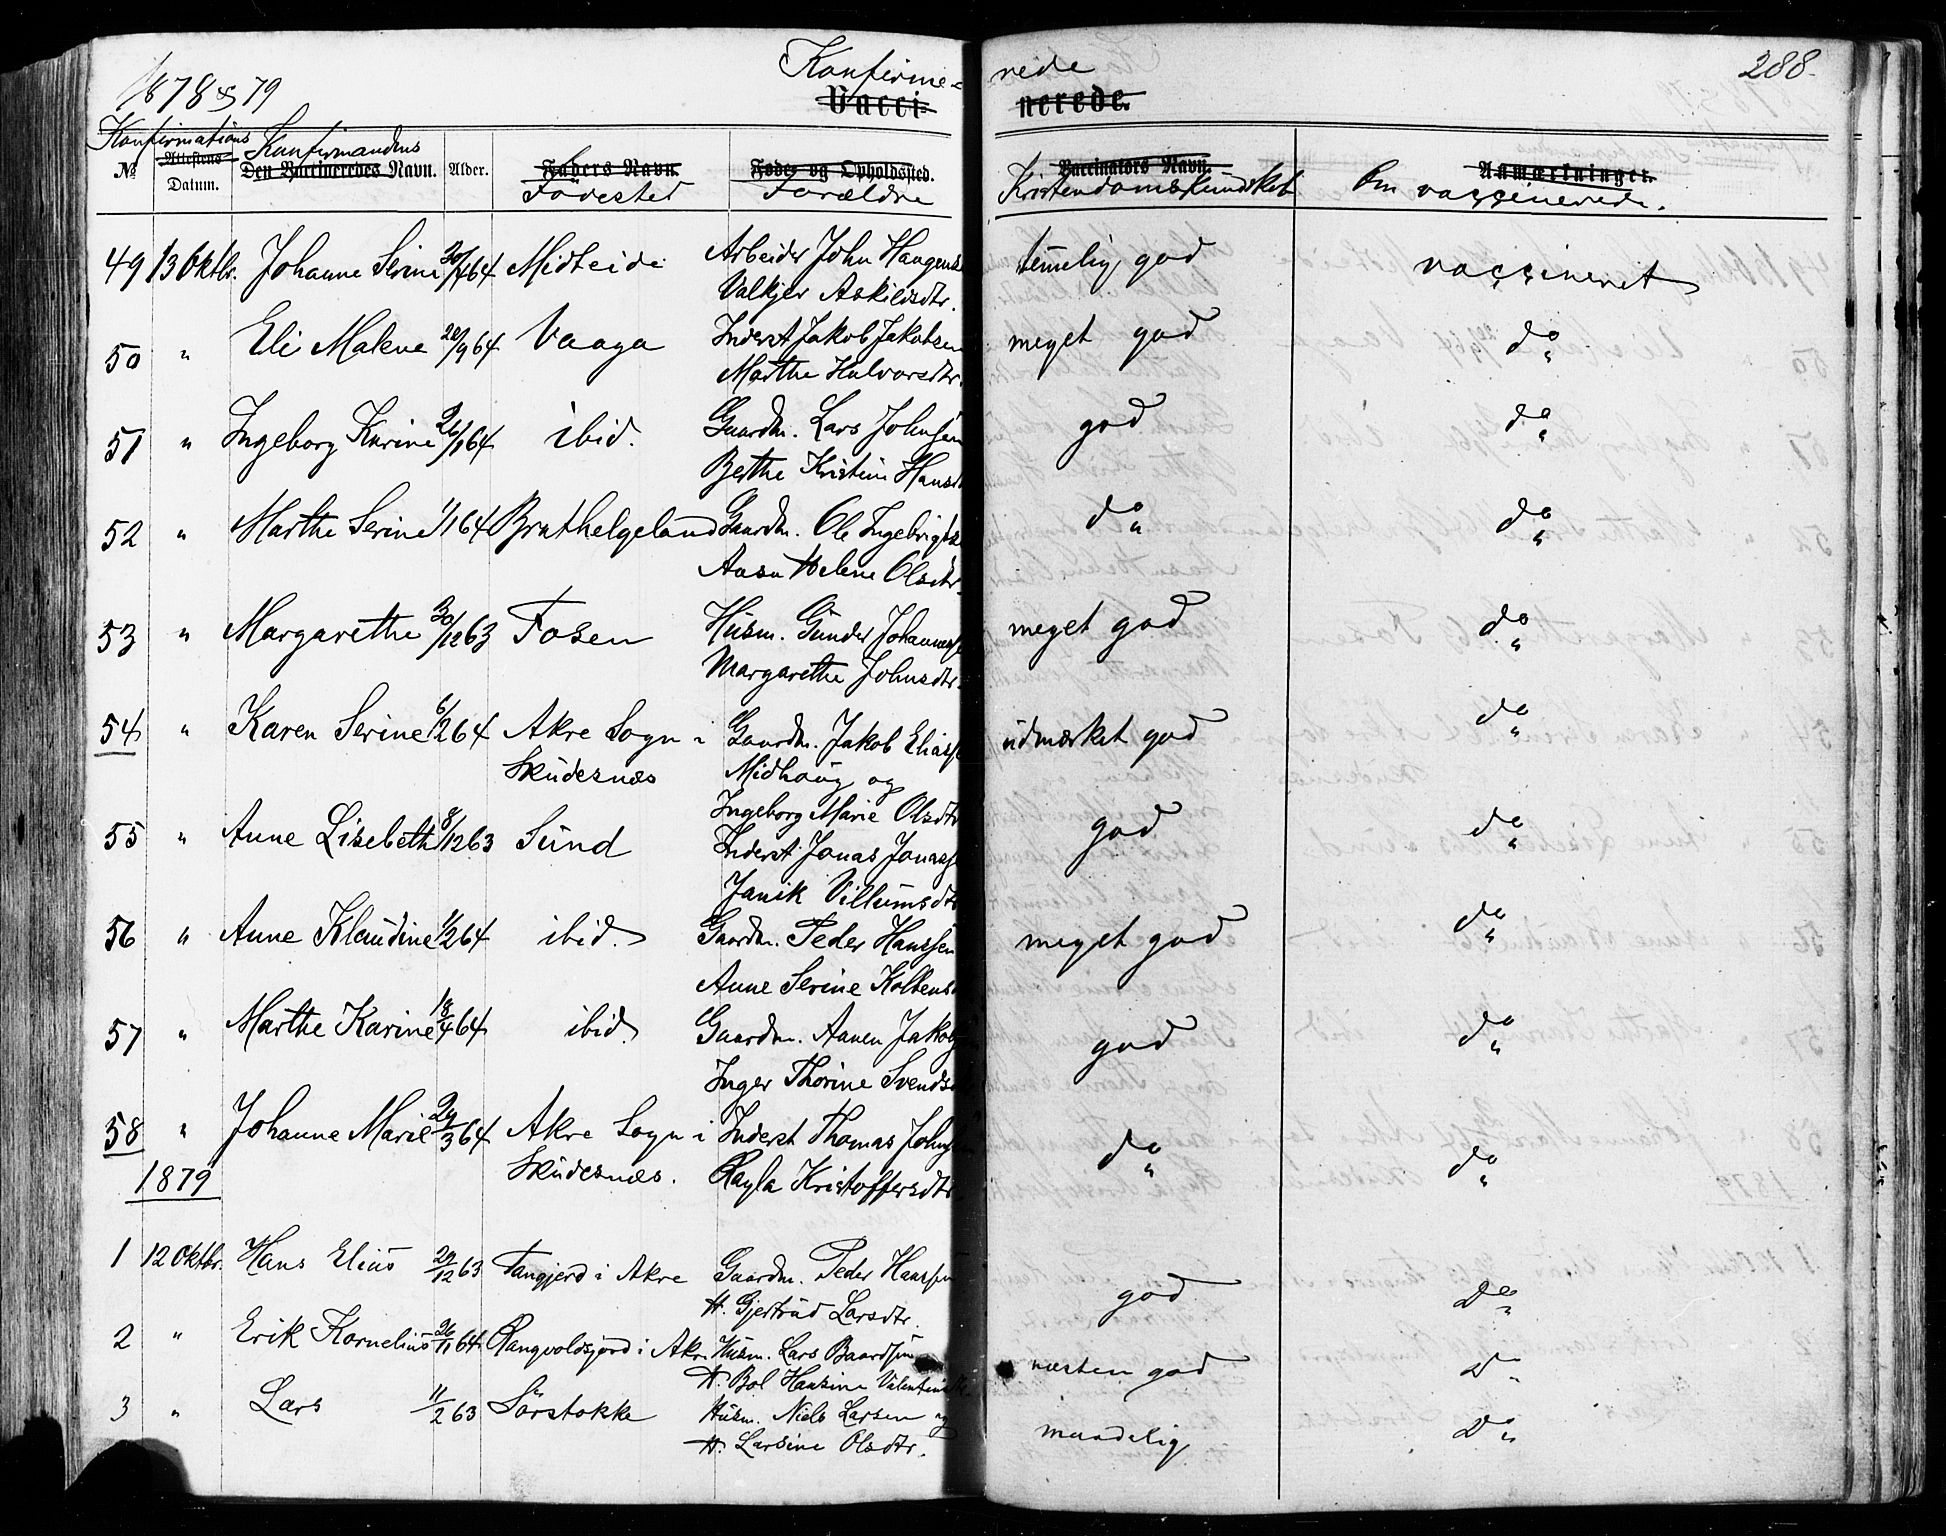 1878 & 79
Konfirme=
rede
288.
Vacci-
nerede.
Konfirmations
Konfirmandens
№ Attestens Datum. Den Vaccineredes Navn. Alder. Faders Navn. Føde- og Opholdssted. Vaccinators Navn. Anmærkninger.
Födested Forældre Kristendomskundskab Om vaccinerede.
49 13 Oktbr. Johanne Serine 30/4 64 Midteide Arbeider John Haugens temelig god vaccineret
Valkjer Askildsdtr.
50 " Eli Malene 20/9 64 Vaaga Inderst Jakob Jakobsen meget god do
Marthe Halvorsdtr.
51 " Ingeborg Karine 26/1 64 ibid. Gaardm. Lars Johnsen god do
Berthe Kristine Hansd
52 " Marthe Serine 1/1 64 Brathelgeland Gaardm. Ole Ingebrigts do do
Aasa Helene Olsdtr.
53 " Margarethe 30/12 63 Fosen Husm. Gunder Johannes meget god do
Margarethe Johnsdtr.
54 " Karen Serine 6/2 64 Akre Sogn i Gaardm. Jakob Elias udmærket god do
Skudesnæs Midhaug og
Ingeborg Marie Olsdtr
55 " Anne Lisebeth 8/12 63 Sund Inderst Jonas Jonas god do
Janik Villumsdtr
56 " Anne Klaudine 1/2 64 ibid. Gaardm. Peder Hanssen meget god do
Anne Serine Kolbens
57 " Marthe Karine 18/4 64 ibid. Gaardm. Aanen Jakobs god do
Inger Thorine Svends
58 " Johanne Marie 24/3 64 Akre Sogn i Inderst Thomas Johns do do
Skudesnæs. Ragla Kristoffersdtr.
1879
1 12 Oktbr. Hans Elius 29/12 63 Tangjerd i Akre Gaardm. Peder Hanssen god Do
H. Gjertrud Larsdtr.
2 " Erik Kornelius 26/1 64 Rangvoldsjord i Akre Husm. Lars Baardsen næsten god Do
H. Bol Hansine Valentinsdtr.
3 " Lars 11/2 63 Sörstokke Husm. Niels Larsen og maadelig Do
H. Larsine Olsdtr.